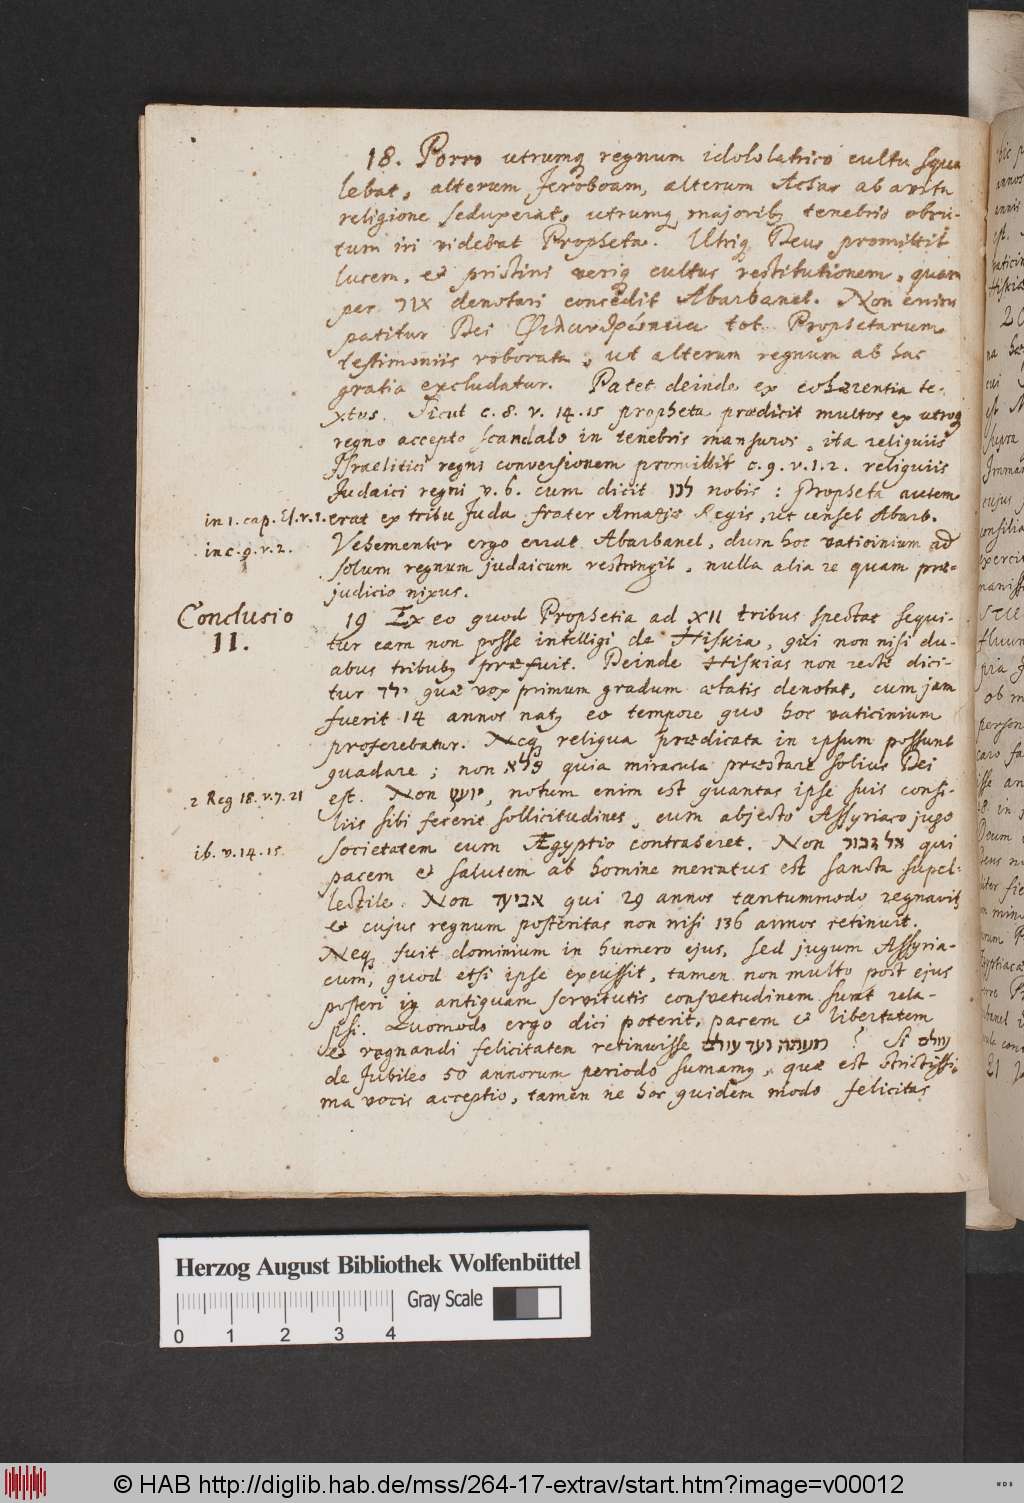 18. Porro utrumq regnum idololatrico cultu squa
lebat, alterum Jeroboam, alterum Achas ab avita
religione seduxerat, utrumq majorib tenebris obru-
tum iri videbat Propheta. Utriq Deus promittit
lucem, et pristini veriq cultus restitutionem, quam
per אור denotari concedit Abarbanel. Non enim
patitur Dei Φιλανθρώπεια tot Prophetarum
testimoniis roborata, ut alterum regnum ab hac
gratia excludatur. Patet deinde ex cohærentia te-
xtus. Sicut c. 8. v. 14. 15 propheta prædicit multos ex utroq
regno accepto scandalo in tenebris mansuros, ita reliquiis
Israelitici regni conversionem promittit c. 9. v. 1. 2. reliquiis
Judaici regni v. 6. cum dicit לנו nobis: Propheta autem
in 1. cap. Es. v. 1. erat ex tribu Juda frater Amazjæ Regis, ut censet Abarb.
in c. 9. v. 2. Vehementer ergo errat Abarbanel, dum hoc vaticinium ad
solum regnum judaicum restringit, nulla alia re quam præ-
judicio nixus.
Conclusio
II.
19 Ex eo quod Prophetia ad XII tribus spectat sequi-
tur eam non posse intelligi de Hiskia, qui non nisi du-
abus tribub præfuit. Deinde Hiskias non recte dici-
tur ילד quæ vox primum gradum ætatis denotat, cum jam
fuerit 14 annos nat eo tempore quo hoc vaticinium
proferebatur. Neq reliqua prædicata in ipsum possunt
quadare; non פלא quia miracula præstare solius Dei
2 Reg 18. v. 7. 21 est. Non יועץ, notum enim est quantas ipse suis consi-
liis sibi fecerit sollicitudines, cum abjecto Assyriaco jugo
ib. v. 14. 15. societatem cum Ægyptio contraheret. Non אל גבור qui
pacem et salutem ab homine mercatus est sancta supel-
lectile. Non אביעד qui 29 annos tantummodo regnavit
et cujus regnum posteritas non nisi 136 annos retinuit.
Neq fuit dominium in humero ejus, sed jugum Assyria-
cum, quod etsi ipse excussit, tamen non multo post ejus
posteri in antiquam servitutis consvetudinem sunt rela-
psi. Quomodo ergo dici poterit, pacem et libertatem
et regnandi felicitatem retinuisse מעתה ועד עולם? Si עולם
de Jubileo 50 annorum periodo sumam, quæ est strictissi
ma vocis acceptio, tamen ne hoc quidem modo felicitas
Herzog August Bibliothek Wolfenbüttel
Gray Scale
0 1 2 3 4
© HAB http://diglib.hab.de/mss/264-17-extrav/start.htm?image=v00012